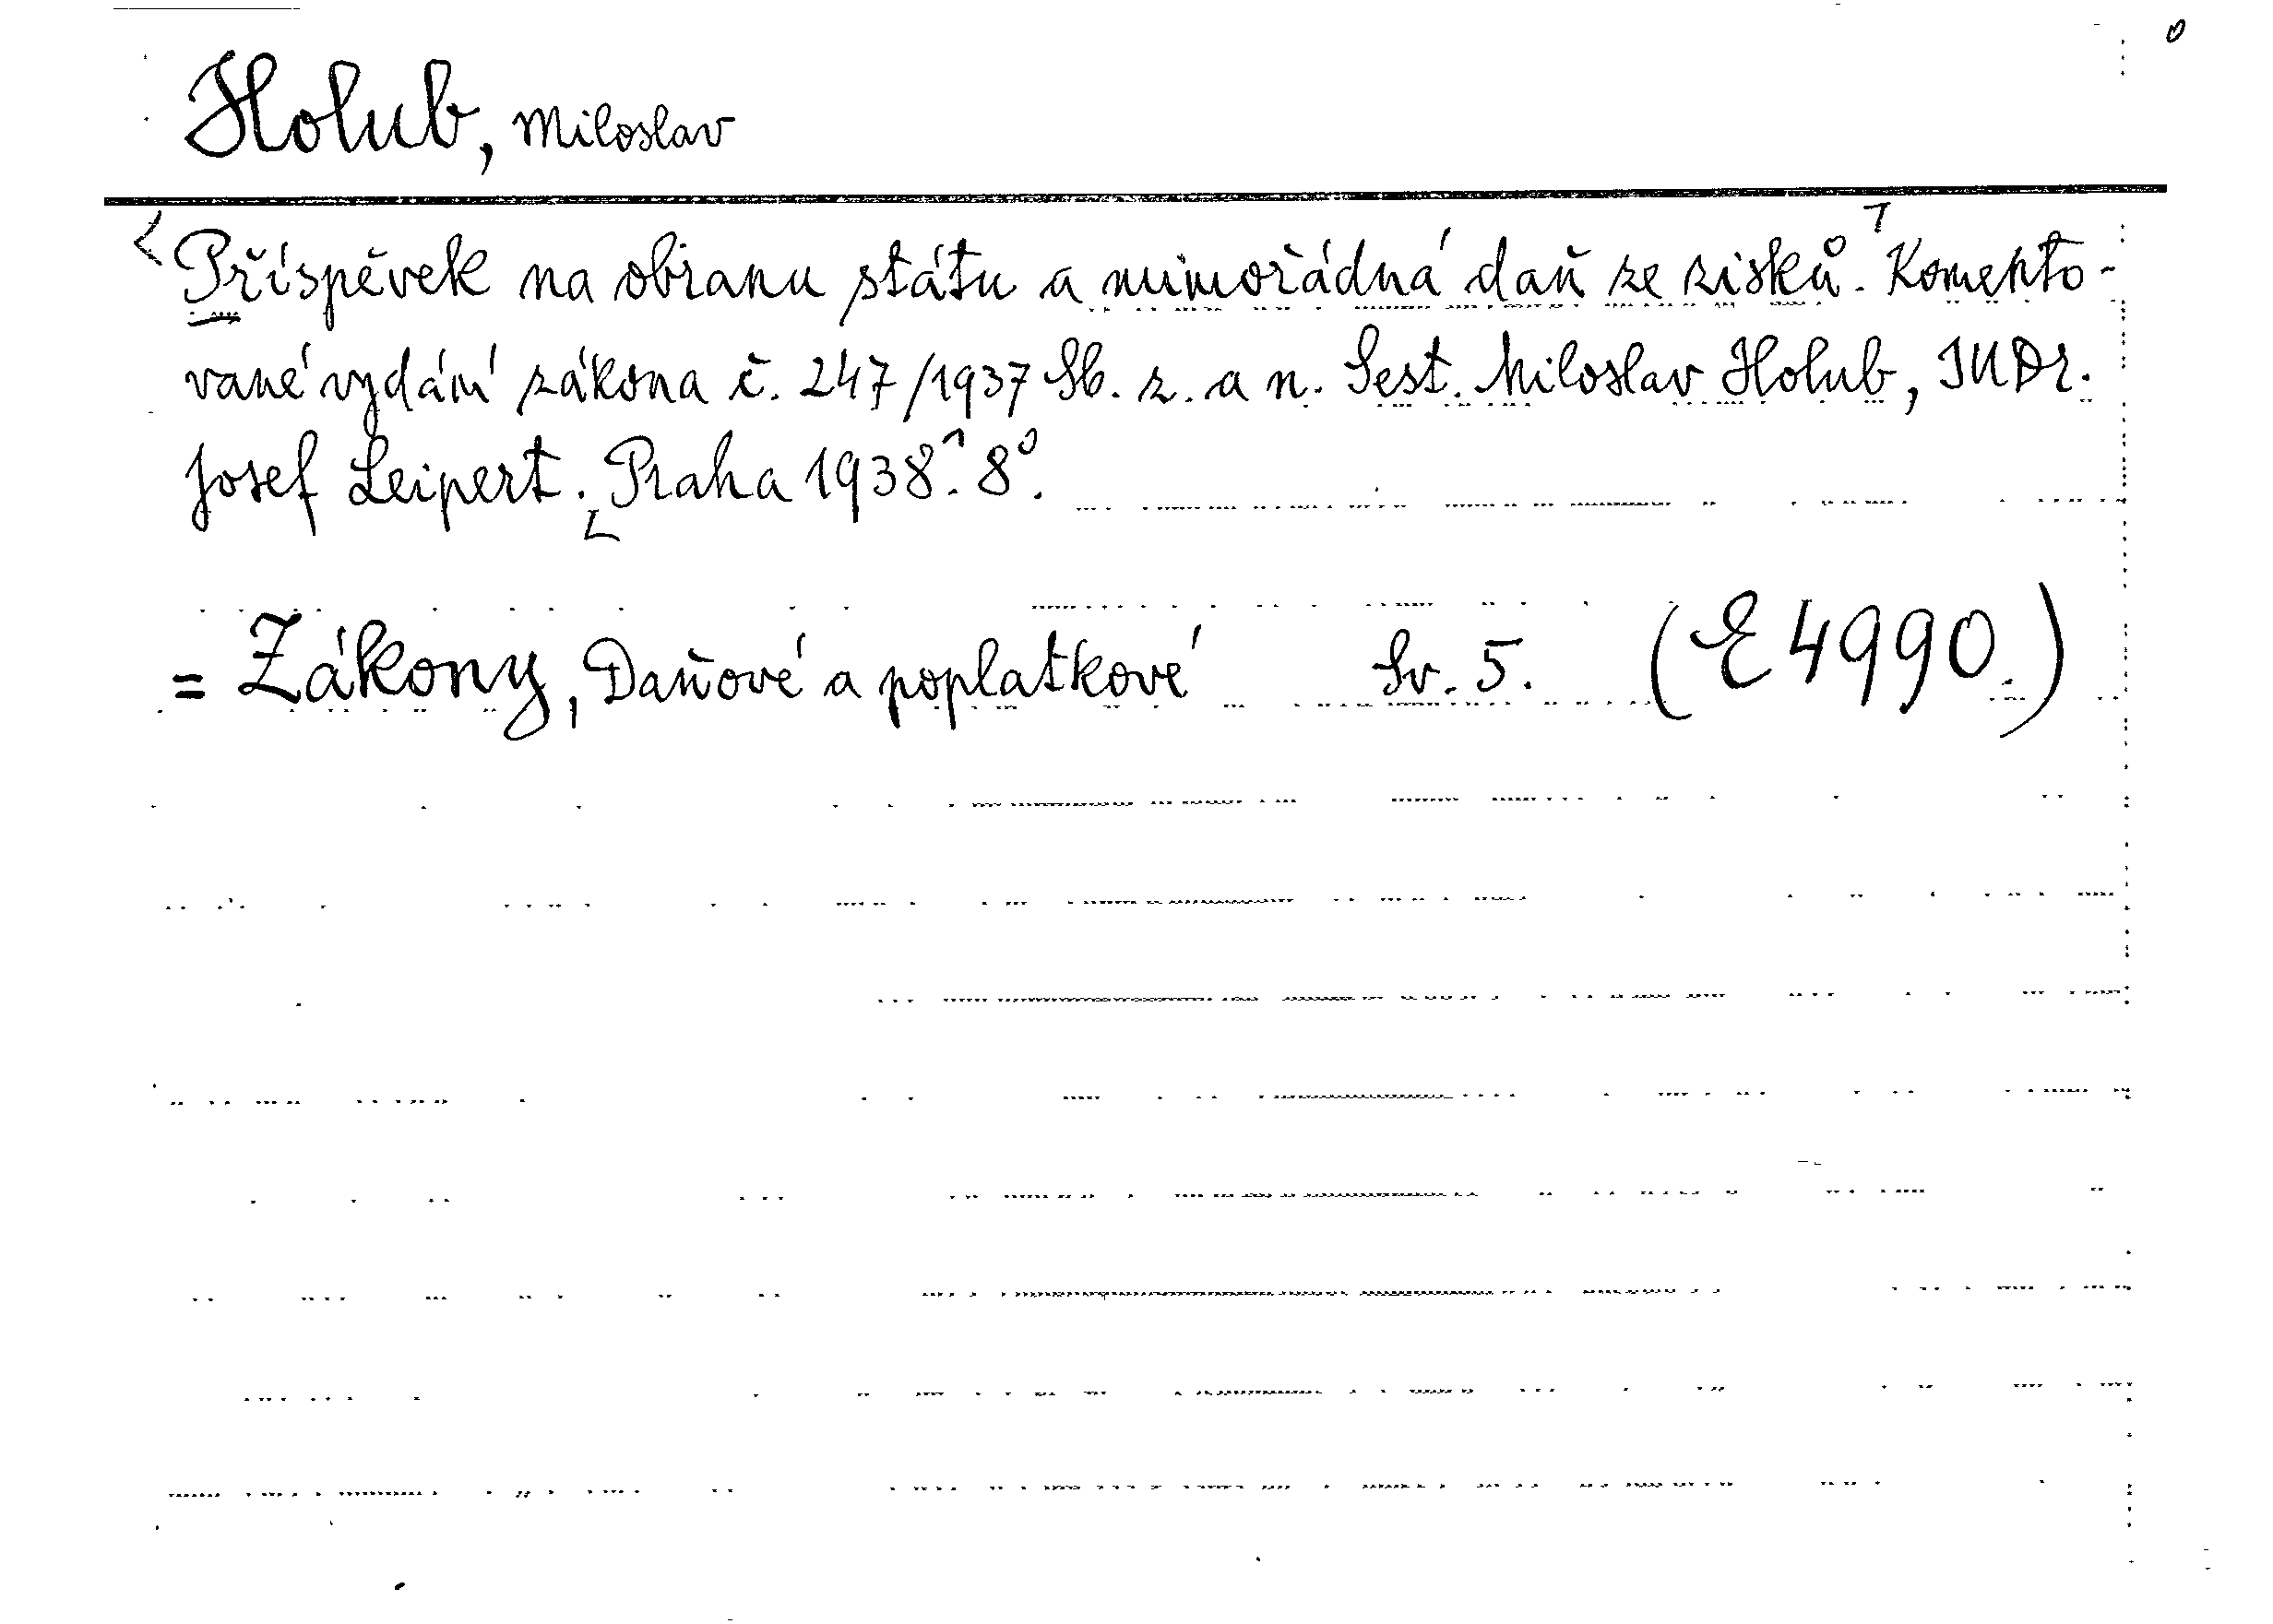 Holub, Miloslav
Příspěvek na obranu státu a mimořádná daň ze zisků. Komento-
vané vydání zákona č. 247/1937 Sb. z. a n. Sest. Miloslav Holub, JUDr.
Josef Leipert. Praha 1938. 8°.
= Zákony, Daňové a poplatkové Sv. 5. (E 4990.)